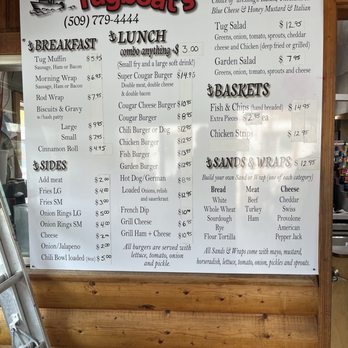 Tugboat's
(509) 779-4444
BREAKFAST
Tug Muffin $5.95
Sausage, Ham or Bacon
Morning Wrap $6.95
Sausage, Ham or Bacon
Rod Wrap $7.95
Biscuits & Gravy
w/hash patty
Large $9.95
Small $7.95
Cinnamon Roll $4.95
SIDES
Add meat $2.00
Fries LG $4.00
Fries SM $3.00
Onion Rings LG $5.00
Onion Rings SM $4.00
Cheese
Onion/Jalapeno $2.00
Chili Bowl loaded $5.00
LUNCH
combo anything $3.00
(Small fry and a large soft drink)
Super Cougar Burger $14.95
Double meat, double cheese
& double bacon
Cougar Cheese Burger
Cougar Burger
Chili Burger or Dog
Chicken Burger
Fish Burger
Garden Burger
Hot Dog/German
Loaded Onions, relish
and sauerkraut
French Dip
Grill Cheese
Grill Ham + Cheese
All burgers are served with
lettuce, tomato, onion
and pickle.
Blue Cheese & Honey Mustard & Italian
Tug Salad $12.95
Greens, onion, tomato, sprouts, cheddar
cheese and Chicken (deep fried or grilled)
Garden Salad $7.95
Greens, onion, tomato, sprouts and cheese
BASKETS
Fish & Chips (hand breaded) $14.95
Extra Pieces ea
Chicken Strips $12.95
SANDS & WRAPS $12.95
Build your own Sand or Wrap (one of each category)
Bread Meat Cheese
White Beef Cheddar
Whole Wheat Turkey Swiss
Sourdough Ham Provolone
Rye American
Flour Tortilla Pepper Jack
All Sands & Wraps come with mayo, mustard,
horseradish, lettuce, tomato, onion, pickles and sprouts.